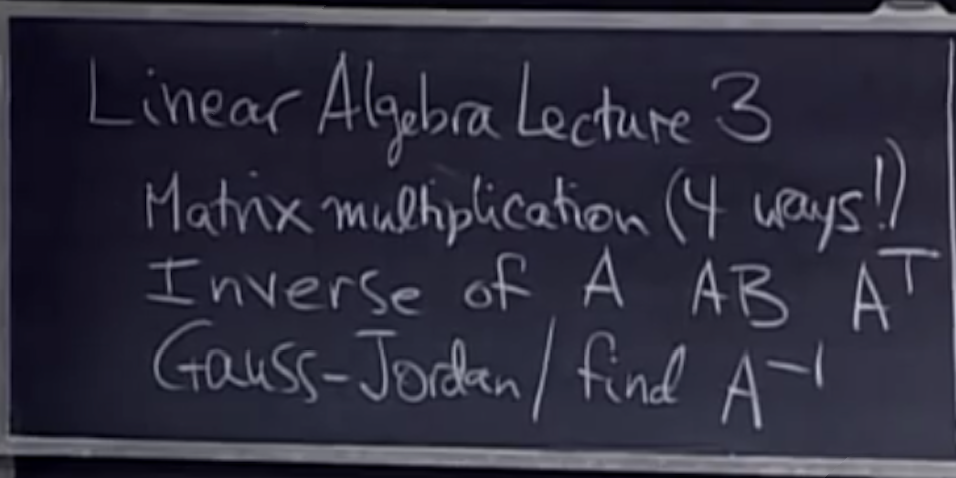 Linear Algebra Lecture 3
Matrix multiplication (4 ways!)
Inverse of A AB Aᵀ
Gauss-Jordan / find A⁻¹